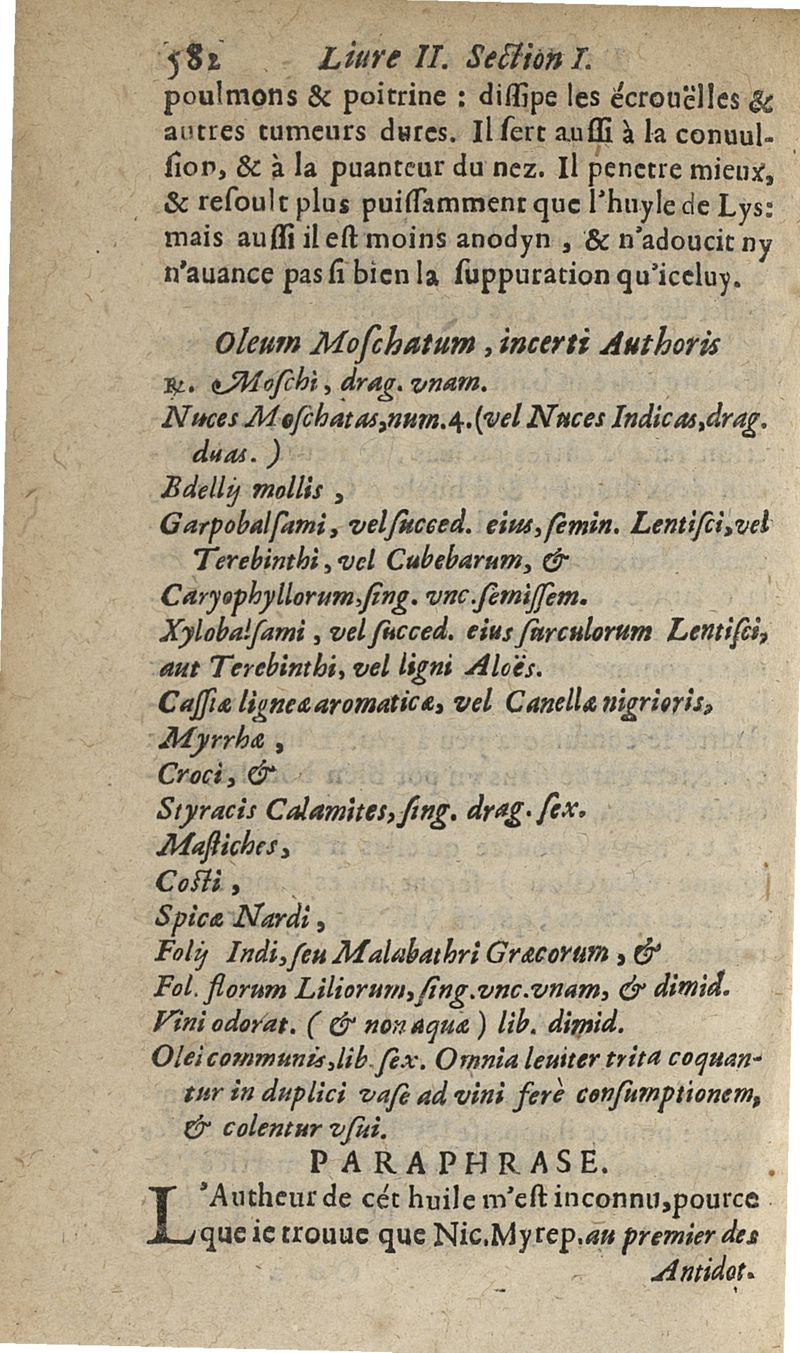 582 Liure II. Section I.
poulmons & poitrine : diſſipe les écrouëlles &
autres tumeurs dures. Il ſert auſſi à la conuul-
ſion, & à la puanteur du nez. Il penetre mieux,
& reſoult plus puiſſamment que l'huyle de Lys:
mais auſſi il eſt moins anodyn , & n'adoucit ny
n'auance pas ſi bien la ſuppuration qu'iceluy.
Oleum Moſchatum , incerti Authoris
℞. Moſchi, drag. vnam.
Nuces Moſchatas,num.4.(vel Nuces Indicas,drag.
duas. )
Bdellij mollis ,
Garpobalſami, vel ſucced. eius, ſemin. Lentiſci,vel
Terebinthi, vel Cubebarum, &
Caryophyllorum,ſing. vnc.ſemiſſem.
Xylobalſami , vel ſucced. eius ſurculorum Lentiſci,
aut Terebinthi, vel ligni Aloës.
Caſſiæ ligneæ aromaticæ, vel Canellæ nigrioris,
Myrrhæ ,
Croci, &
Styracis Calamites, ſing. drag. ſex.
Maſtiches,
Coſti ,
Spicæ Nardi ,
Folij Indi, ſeu Malabathri Græcorum , &
Fol. florum Liliorum, ſing.vnc.vnam, & dimid.
Vini odorat. ( & non aquæ ) lib. dimid.
Olei communis,lib. ſex. Omnia leuiter trita coquan-
tur in duplici vaſe ad vini ferè conſumptionem,
& colentur vſui.
PARAPHRASE.
L'Autheur de cét huile m'eſt inconnu,pource
que ie trouue que Nic.Myrep.au premier des
Antidot.